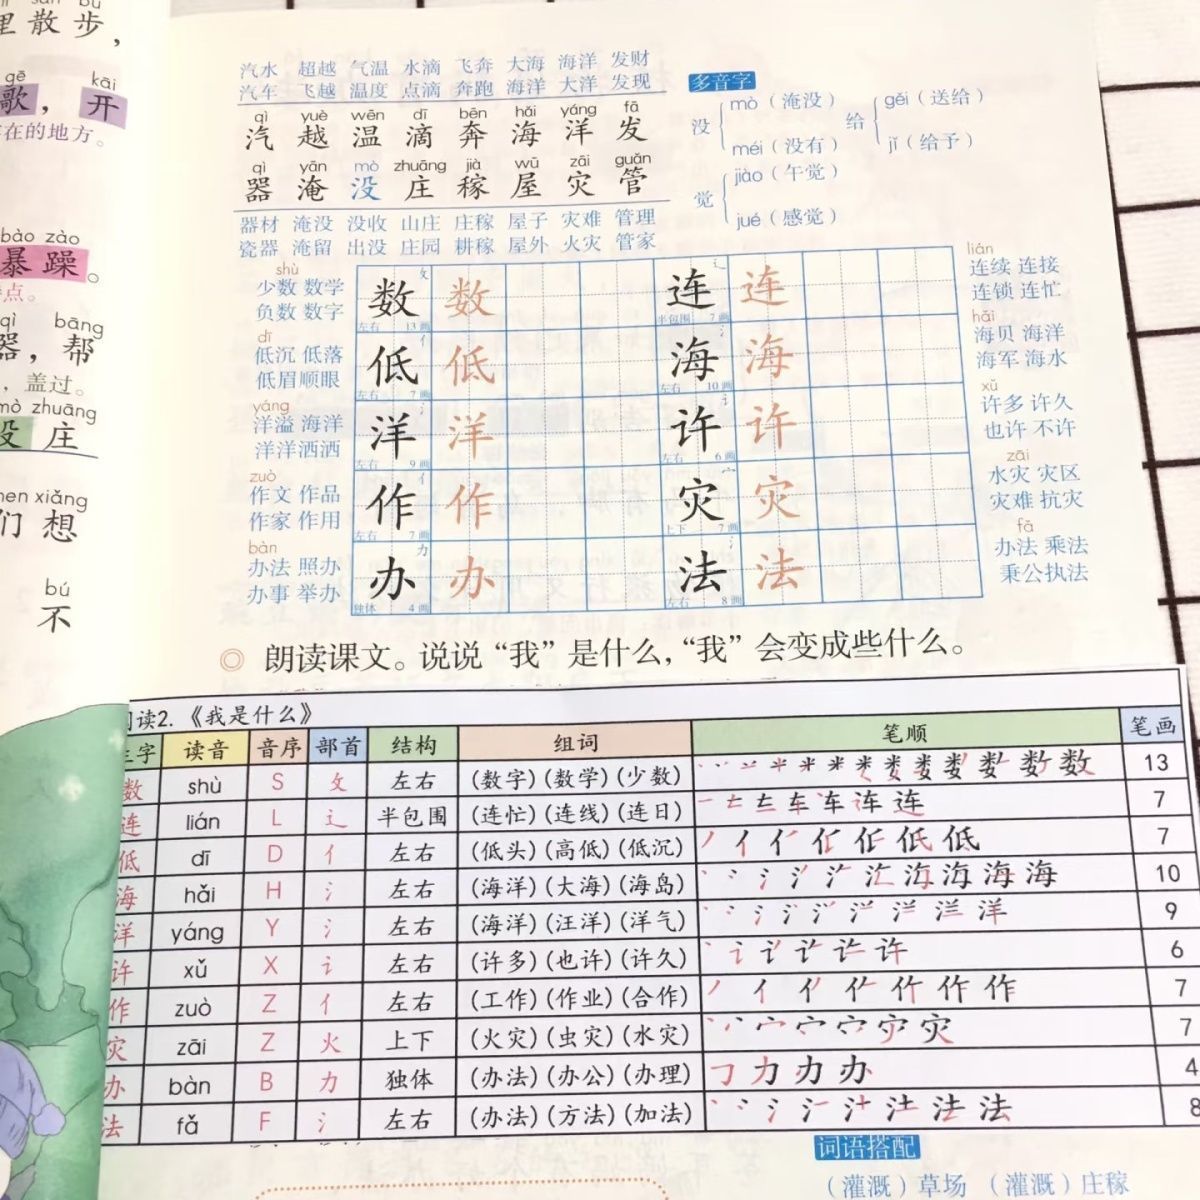 里散步，
gē kāi
歌，开
存在的地方。
bào zào
暴躁。
点。
qì bāng
器，帮
，盖过。
mò zhuāng
没庄
men xiǎng
们想
bú
不
汽水 超越 气温 水滴 飞奔 大海 海洋 发财
汽车 飞越 温度 点滴 奔跑 海洋 大洋 发现
qì yuè wēn dī bēn hǎi yáng fā
汽 越 温 滴 奔 海 洋 发
qì yān mò zhuāng jià wū zāi guǎn
器 淹 没 庄 稼 屋 灾 管
器材 淹没 没收 山庄 庄稼 屋子 灾难 管理
瓷器 淹留 出没 庄园 耕稼 屋外 火灾 管家
多音字
没 mò（淹没） méi（没有）
给 gěi（送给） jǐ（给予）
觉 jiào（午觉） jué（感觉）
shù
少数 数学
负数 数字
dī
低沉 低落
低眉顺眼
yáng
洋溢 海洋
洋洋洒洒
zuò
作文 作品
作家 作用
bàn
办法 照办
办事 举办
数 数 攵 左右 13画
连 连 辶 半包围 7画
低 低 亻 左右 7画
海 海 氵 左右 10画
洋 洋 氵 左右 9画
许 许 讠 左右 6画
作 作 亻 左右 7画
灾 灾 宀 上下 7画
办 办 力 独体 4画
法 法 氵 左右 8画
lián
连续 连接
连锁 连忙
hǎi
海贝 海洋
海军 海水
xǔ
许多 许久
也许 不许
zāi
水灾 灾区
灾难 抗灾
fǎ
办法 乘法
秉公执法
◎ 朗读课文。说说“我”是什么，“我”会变成些什么。
阅读2.《我是什么》
生字 读音 音序 部首 结构 组词 笔顺 笔画
数 shù S 攵 左右 (数字)(数学)(少数) 13
连 lián L 辶 半包围 (连忙)(连线)(连日) 7
低 dī D 亻 左右 (低头)(高低)(低沉) 7
海 hǎi H 氵 左右 (海洋)(大海)(海岛) 10
洋 yáng Y 氵 左右 (海洋)(汪洋)(洋气) 9
许 xǔ X 讠 左右 (许多)(也许)(许久) 6
作 zuò Z 亻 左右 (工作)(作业)(合作) 7
灾 zāi Z 火 上下 (火灾)(虫灾)(水灾) 7
办 bàn B 力 独体 (办法)(办公)(办理) 4
法 fǎ F 氵 左右 (办法)(方法)(加法) 8
词语搭配
（灌溉）草场 （灌溉）庄稼